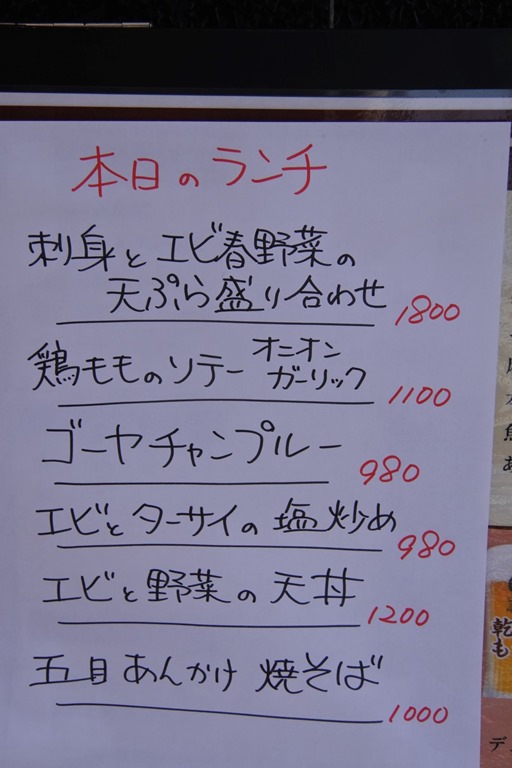 本日のランチ
刺身とエビ春野菜の
天ぷら盛り合わせ 1800
鶏もものソテー オニオンガーリック 1100
ゴーヤチャンプルー 980
エビとターサイの塩炒め 980
エビと野菜の天丼 1200
五目あんかけ焼そば 1000
乾
も
デ